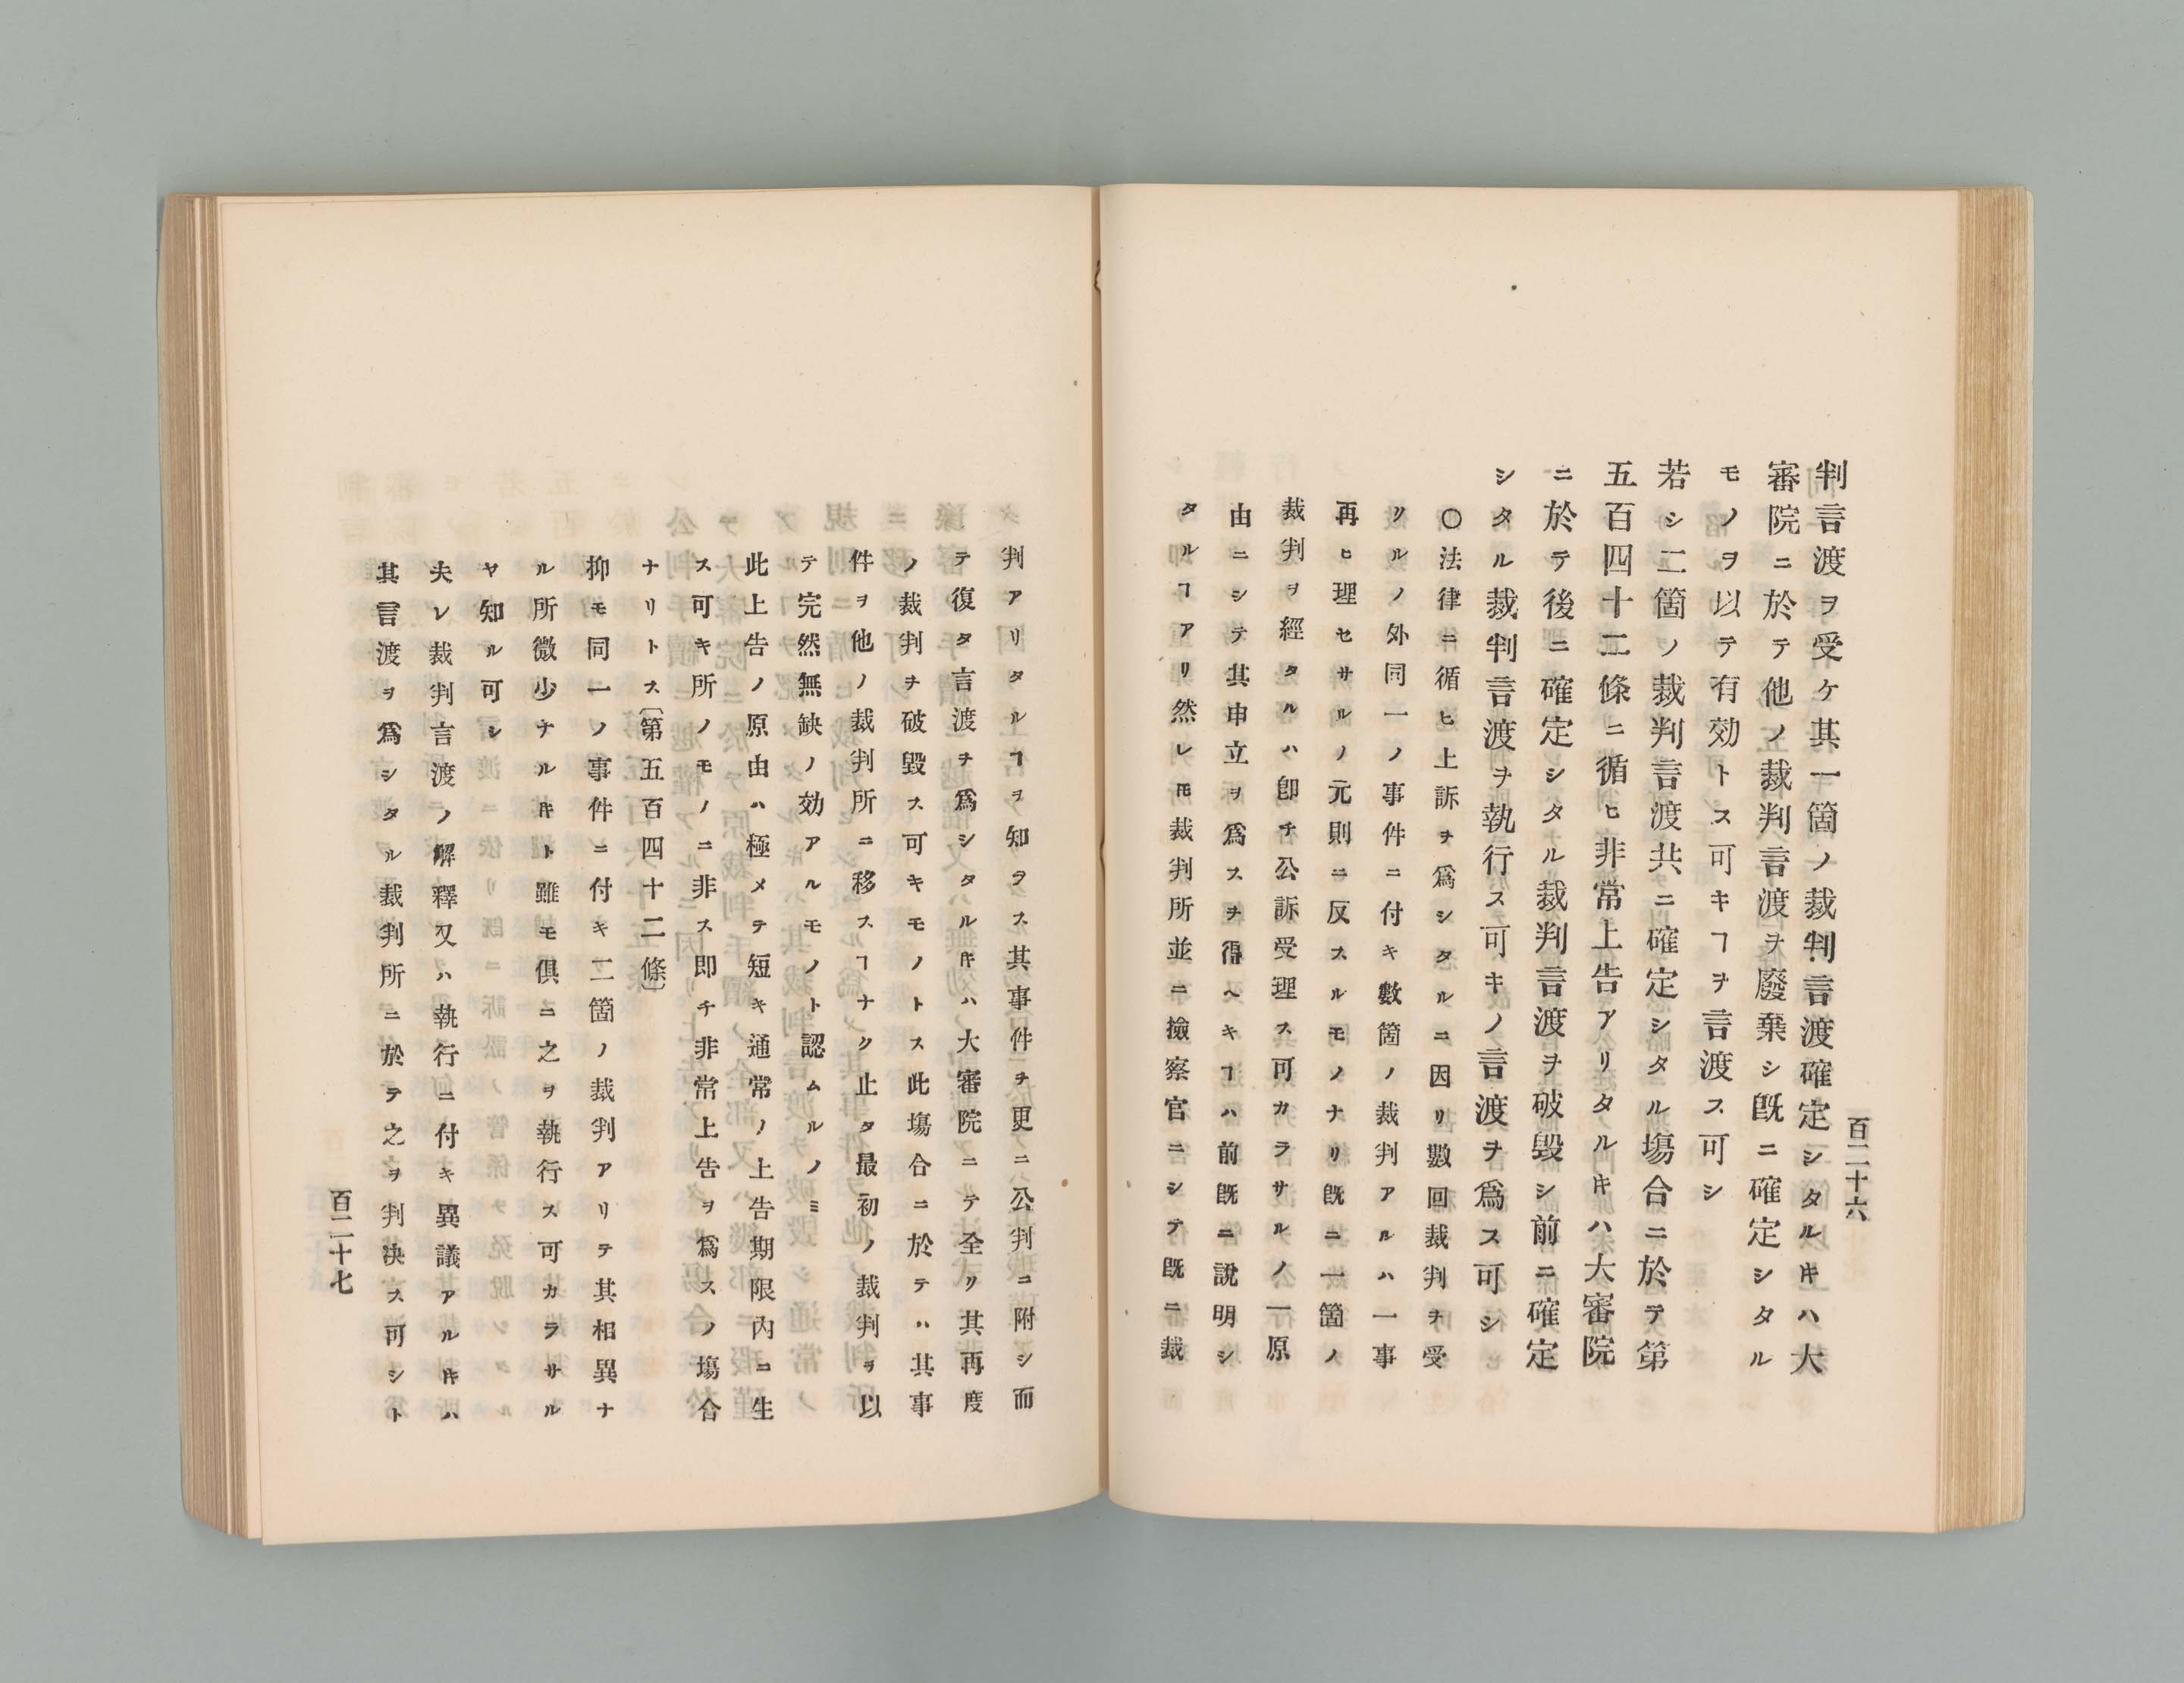 百二十六
判言渡ヲ受ケ其一箇ノ裁判言渡確定シタルキハ大
審院ニ於テ他ノ裁判言渡ヲ廢棄シ既ニ確定シタル
モノヲ以テ有効トス可キヿヲ言渡ス可シ
若シ二箇ノ裁判言渡共ニ確定シタル塲合ニ於テ第
五百四十二條ニ循ヒ非常上告アリタルキハ大審院
ニ於テ後ニ確定シタル裁判言渡ヲ破毀シ前ニ確定
シタル裁判言渡ヲ執行ス可キノ言渡ヲ爲ス可シ
〇法律ニ循ヒ上訴ヲ爲シタルニ因リ數回裁判ヲ受
ルノ外同一ノ事件ニ付キ數箇ノ裁判アルハ一事
再ヒ理セサルノ元則ニ反スルモノナリ既ニ一箇ノ
裁判ヲ經タルハ卽チ公訴受理ス可カラサルノ一原
由ニシテ其申立ヲ爲スヲ得ヘキヿハ前既ニ說明シ
タルヿアリ然レ𪜈裁判所並ニ撿察官ニシテ既ニ裁
判アリタルヿヲ知ラス其事件ヲ更ニ公判ニ附シ而
テ復タ言渡ヲ爲シタルキハ大審院ニテ全リ其再度
ノ裁判ヲ破毀ス可キモノトス此塲合ニ於テハ其事
件ヲ他ノ裁判所ニ移スヿナク止タ最初ノ裁判ヲ以
テ完然無缺ノ効アルモノト認ムルノミ
此上告ノ原由ハ極メテ短キ通常ノ上告期限內ニ生
ス可キ所ノモノニ非ス即チ非常上告ヲ爲スノ塲合
ナリトス〔第五百四十二條〕
抑モ同一ノ事件ニ付キ二箇ノ裁判アリテ其相異ナ
ル所微少ナルキト雖モ俱ニ之ヲ執行ス可カラサル
ヤ知ル可シ
夫レ裁判言渡ノ解釋又ハ執行ニ付キ異議アルキハ
其言渡ヲ爲シタル裁判所ニ於テ之ヲ判决ス可シト
百二十七